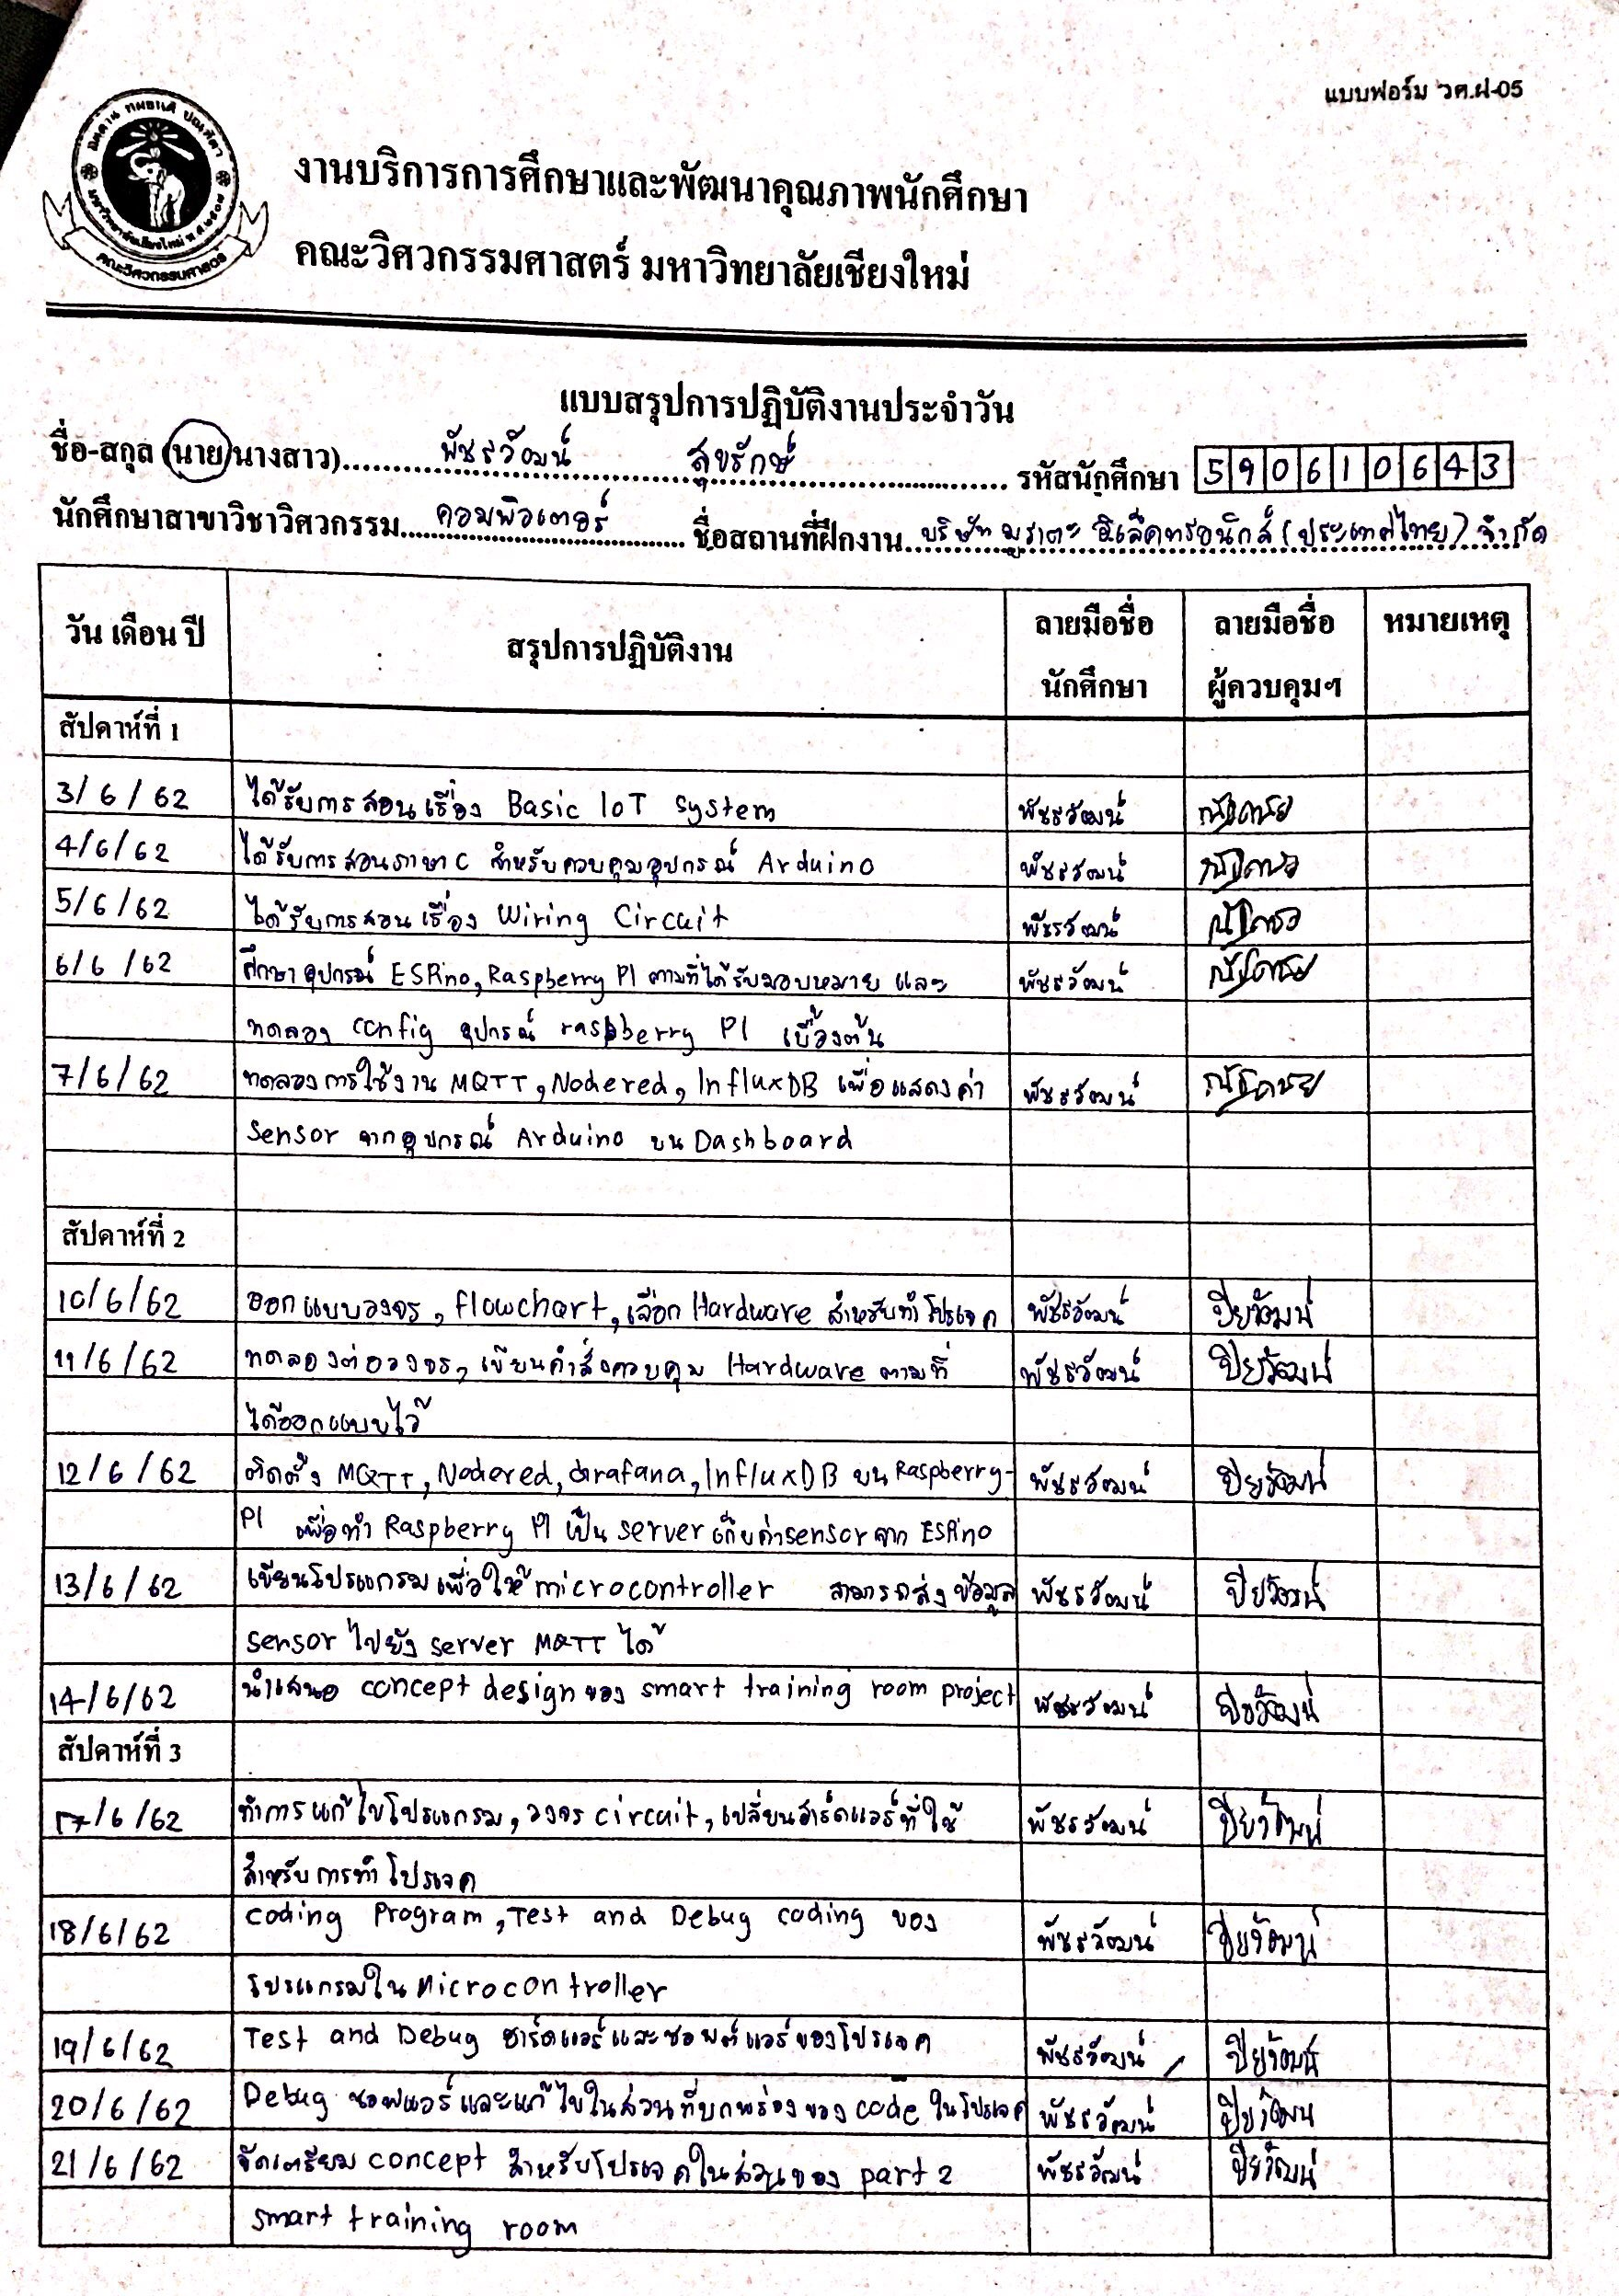 แบบฟอร์ม วศ.ฝ-05
งานบริการการศึกษาและพัฒนาคุณภาพนักศึกษา
คณะวิศวกรรมศาสตร์ มหาวิทยาลัยเชียงใหม่
คณะวิศวกรรมศาสตร์
แบบสรุปการปฏิบัติงานประจำวัน
ชื่อ-สกุล (นาย/นางสาว) พัชรวัฒน์ สุขรักษ์ รหัสนักศึกษา 590610643
นักศึกษาสาขาวิชาวิศวกรรม คอมพิวเตอร์ ชื่อสถานที่ฝึกงาน บริษัท มูราตะ อิเล็คทรอนิกส์ (ประเทศไทย) จำกัด
วัน เดือน ปี สรุปการปฏิบัติงาน ลายมือชื่อนักศึกษา ลายมือชื่อผู้ควบคุมฯ หมายเหตุ
สัปดาห์ที่ 1
3/6/62 ได้รับการสอนเรื่อง Basic IoT system พัชรวัฒน์
4/6/62 ได้รับการสอนภาษา C สำหรับควบคุมอุปกรณ์ Arduino พัชรวัฒน์
5/6/62 ได้รับการสอนเรื่อง Wiring Circuit พัชรวัฒน์
6/6/62 ศึกษาอุปกรณ์ ESPino, Raspberry PI ตามที่ได้รับมอบหมาย และ พัชรวัฒน์
ทดลอง config อุปกรณ์ raspberry PI เบื้องต้น
7/6/62 ทดลองการใช้งาน MQTT, Nodered, InfluxDB เพื่อแสดงค่า พัชรวัฒน์
sensor จากอุปกรณ์ Arduino บน Dashboard
สัปดาห์ที่ 2
10/6/62 ออกแบบวงจร, flowchart, เลือก Hardware สำหรับทำโปรเจค พัชรวัฒน์ ปิยวัฒน์
11/6/62 ทดลองต่อวงจร, เขียนคำสั่งควบคุม Hardware ตามที่ พัชรวัฒน์ ปิยวัฒน์
ได้ออกแบบไว้
12/6/62 ติดตั้ง MQTT, Nodered, Grafana, InfluxDB บน Raspberry- พัชรวัฒน์ ปิยวัฒน์
PI เพื่อทำ Raspberry PI เป็น server เก็บค่า sensor จาก ESPino
13/6/62 เขียนโปรแกรมเพื่อให้ microcontroller สามารถส่งข้อมูล พัชรวัฒน์ ปิยวัฒน์
sensor ไปยัง server MQTT ได้
14/6/62 นำเสนอ concept design ของ smart training room project พัชรวัฒน์ ปิยวัฒน์
สัปดาห์ที่ 3
17/6/62 ทำการแก้ไขโปรแกรม, วงจร circuit, เปลี่ยนฮาร์ดแวร์ที่ใช้ พัชรวัฒน์ ปิยวัฒน์
สำหรับการทำโปรเจค
18/6/62 coding Program, Test and Debug coding ของ พัชรวัฒน์ ปิยวัฒน์
โปรแกรมใน Microcontroller
19/6/62 Test and Debug ฮาร์ดแวร์และซอฟต์แวร์ของโปรเจค พัชรวัฒน์ ปิยวัฒน์
20/6/62 Debug ซอฟแวร์และแก้ไขในส่วนที่บกพร่องของ code ในโปรเจค พัชรวัฒน์ ปิยวัฒน์
21/6/62 จัดเตรียม concept สำหรับโปรเจคในส่วนของ part 2 พัชรวัฒน์ ปิยวัฒน์
smart training room